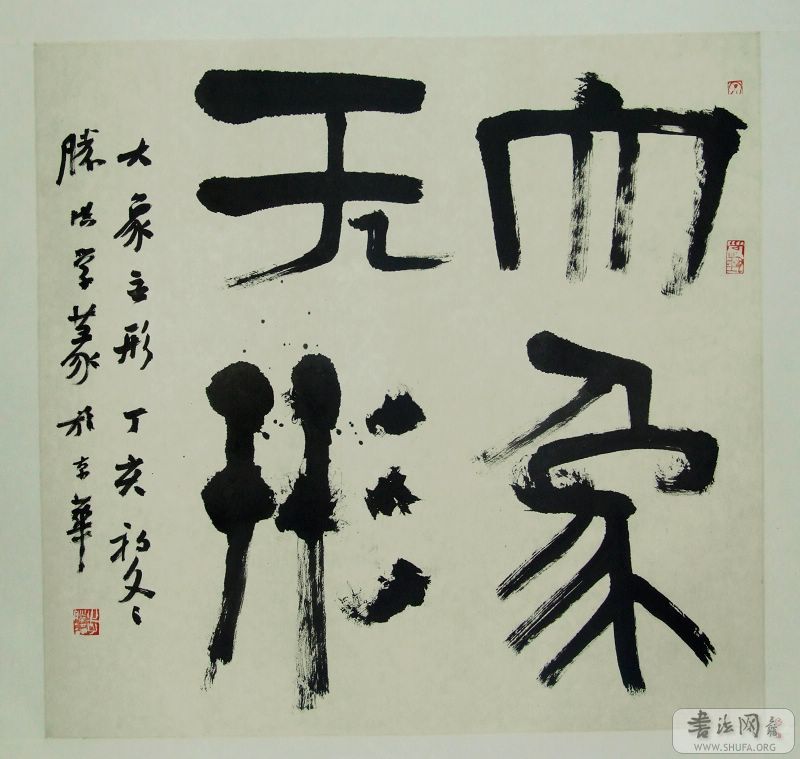 大象
无形
大象无形丁亥初冬
滕洪学篆於京華
书法网
WWW.SHUFA.ORG